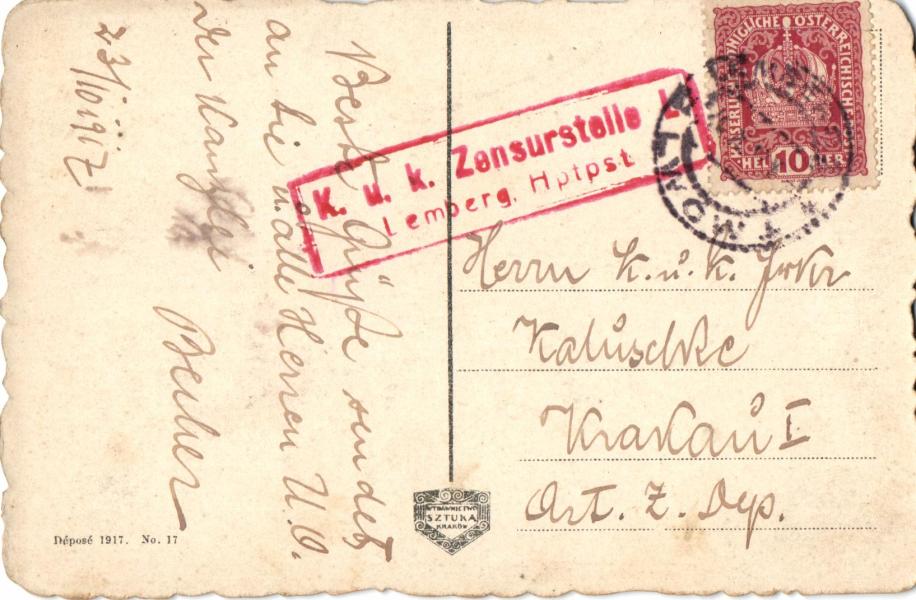 23/10 1917
Beste Grüße sendet
an Sie u. alle Herren U.O.
der Kanzlei
Becher
K. u. k. Zensurstelle L
Lemberg, Hptpst
KAISERLICHE KÖNIGLICHE ÖSTERREICHISCHE
HELLER 10
Herrn K. u. k.
Kaluschke
Krakau I
Art. Z. Dep.
WYDAWNICTWO
SZTUKA
KRAKÓW
Déposé 1917. No. 17